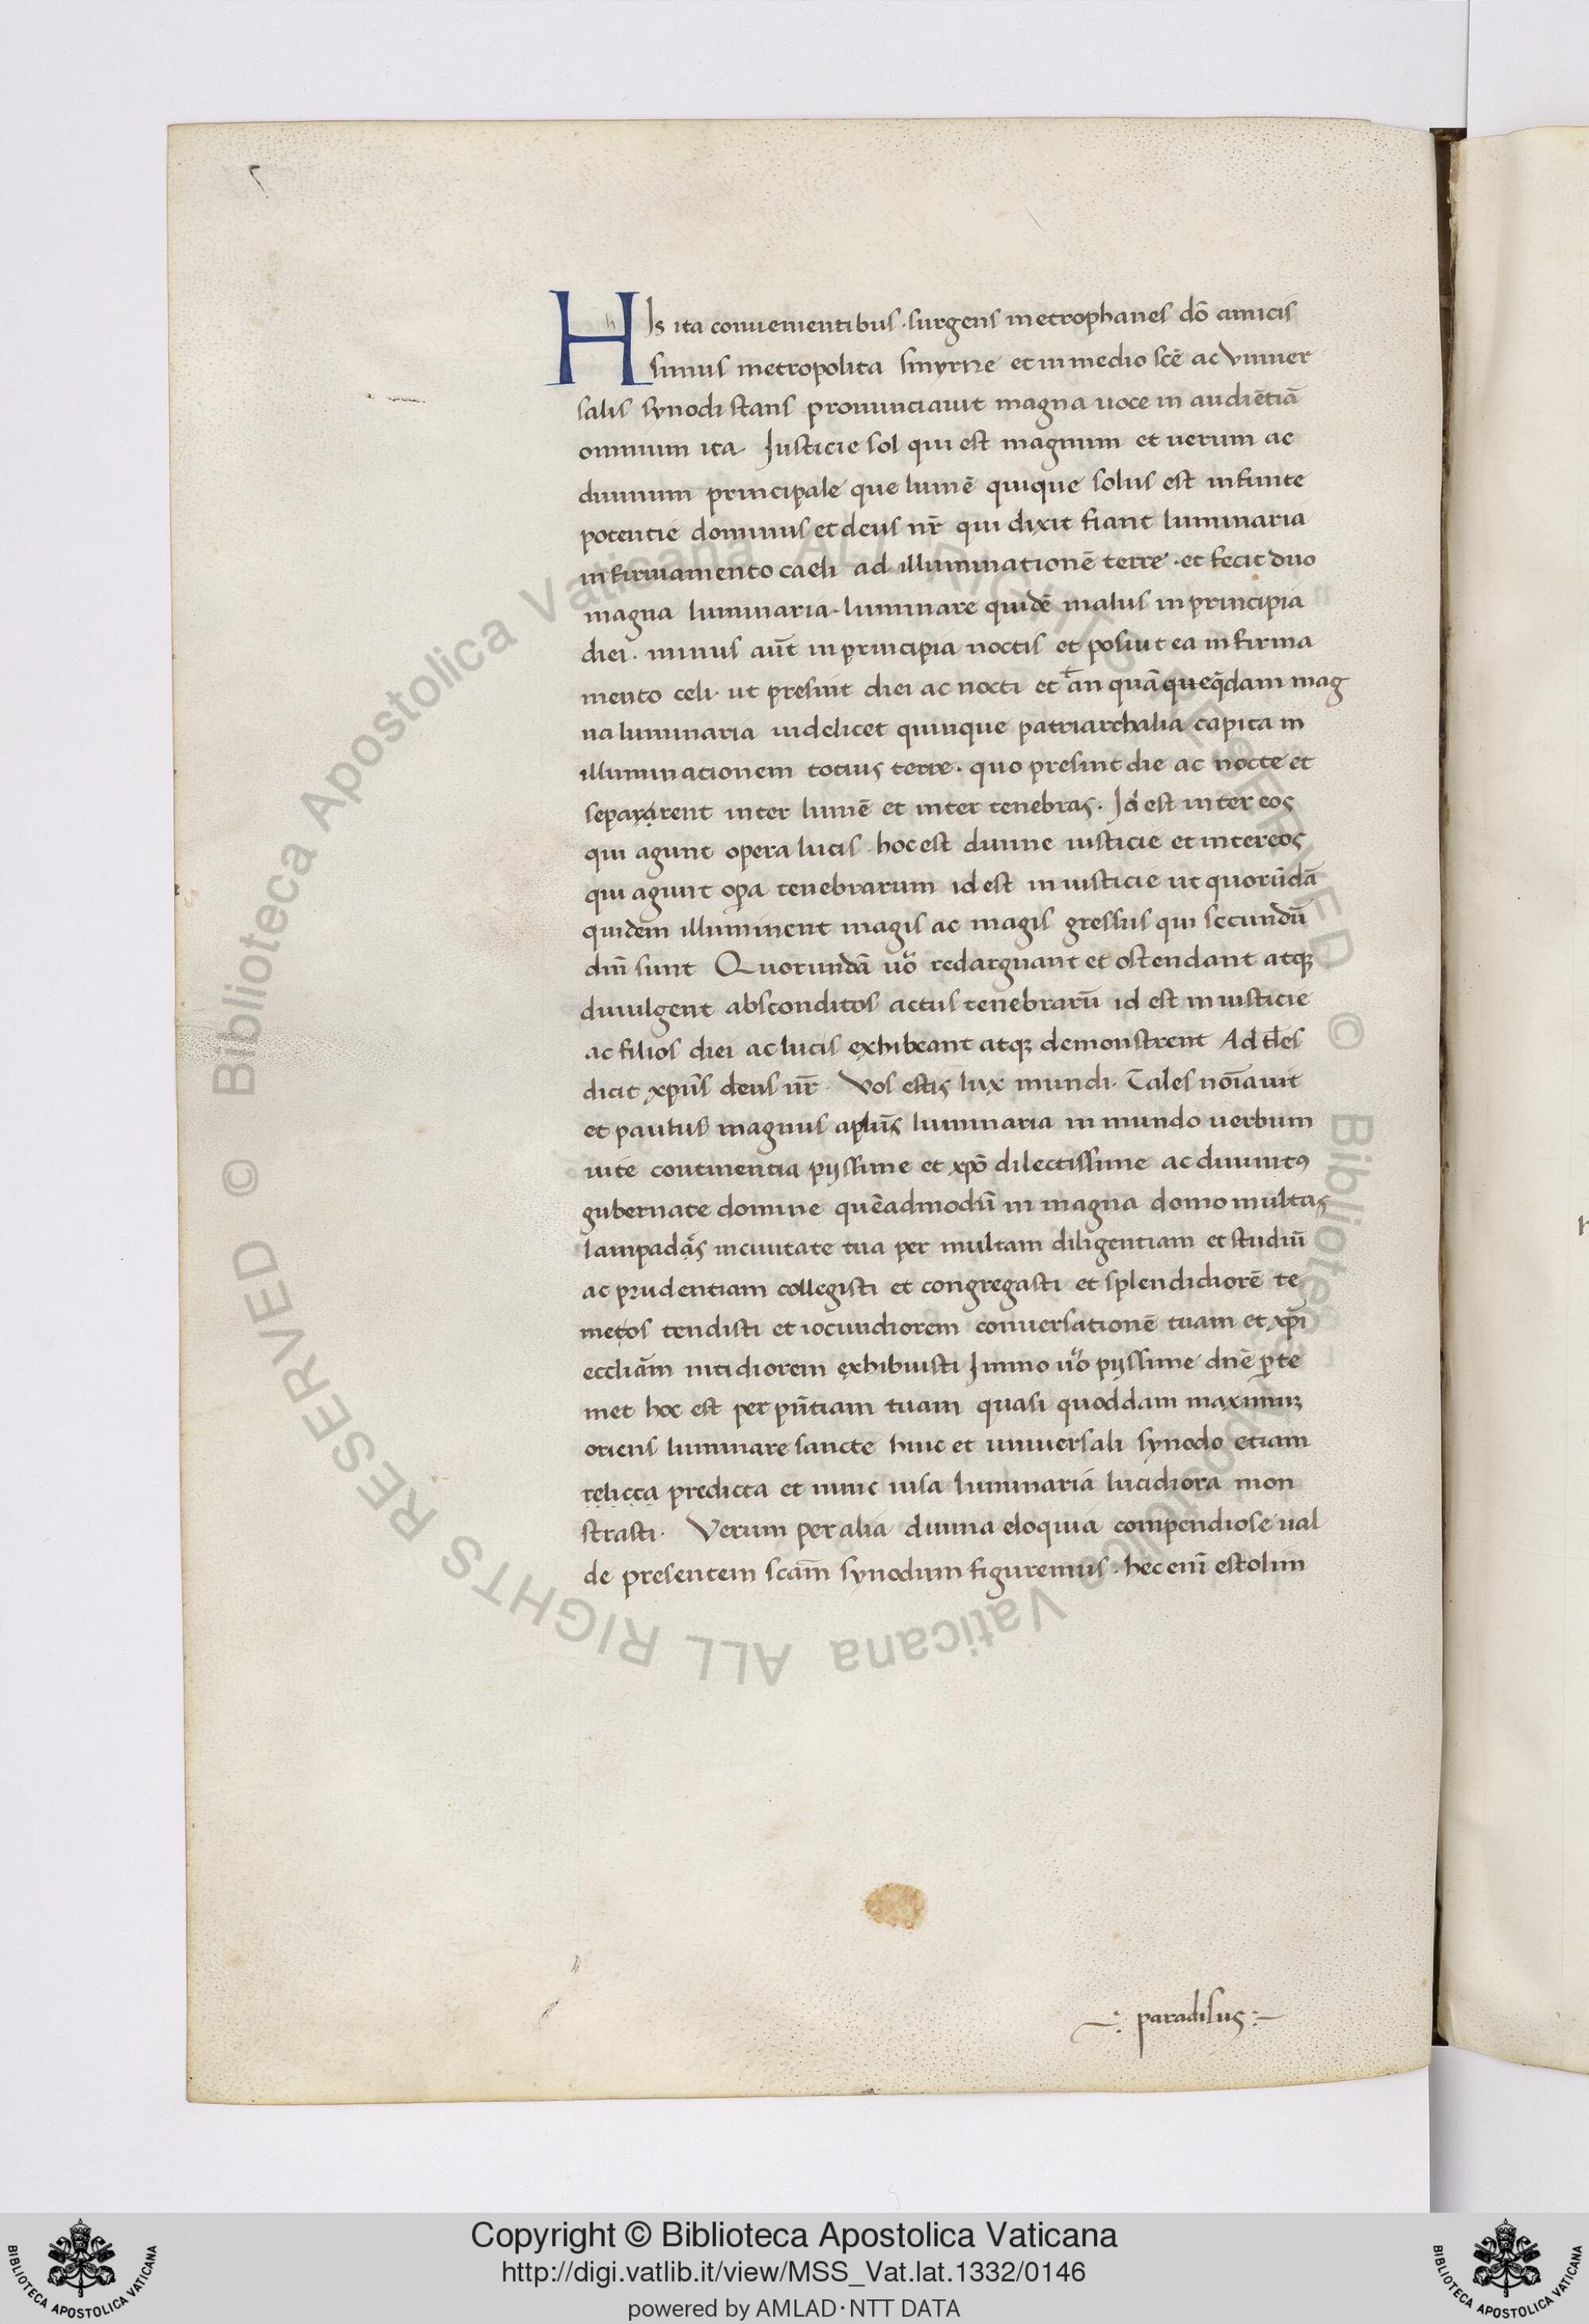 HIs ita conuenientibus · surgens metrophanes dō amicis
simus metropolita smyrne et in medio scē ac vniuer
salis synodi stans pronunciauit magna uoce in audiētiā
omnium ita Iusticie sol qui est magnum et uerum ac
diuinum principale que lumē quique solus est infinite
potentie dominus et deus nr̄ qui dixit fiant luminaria
in firmamento caeli ad illuminationē terre · et fecit duo
magna luminaria · luminare quidē maius in principia
diei · minus aūt in principia noctis et posuit ea in firma
mento celi · ut presint diei ac nocti et quā quedam mag
na luminaria uidelicet quinque patriarchalia capita in
illuminationem totius terre · quo presint die ac nocte et
separarent inter lumē et inter tenebras · Id est inter eos
qui agunt opera lucis hoc est diuine iusticie et inter eos
qui agunt oꝑa tenebrarum id est iniusticie ut quorūdā
quidem illuminent magis ac magis gressus qui secundū
dnī sunt Quorundā uo redarguant et ostendant atqꝫ
diuulgent absconditos actus tenebrarū id est iniusticie
ac filios diei ac lucis exhibeant atqꝫ demonstrent Ad tles
dicit xpūs deus nr̄ · Vos estis lux mundi · Tales noīauit
et paulus magnus aplūs luminaria in mundo uerbum
uite continentia pyssime et xpō dilectissime ac diuinitꝰ
gubernate domine quēadmodū in magna domo multas
lampadas in ciuitate tua per multam diligentiam et studiū
ac prudentiam collegisti et congregasti et splendidiorē te
metos tendisti et iocundiorem conuersationē tuam et xpī
eccliam nitidiorem exhibuisti Immo uo pyssime dnē ꝑ te
met hoc est per pn̄tiam tuam quasi quoddam maximuꝫ
oriens luminare sancte huic et uniuersali synodo etiam
relicta predicta et nunc uisa luminaria lucidiora mon
strasti · Verum per alia diuina eloquia compendiose ual
de presentem scām synodum figuremus · hec enī est olim
paradisus
Copyright © Biblioteca Apostolica Vaticana
http://digi.vatlib.it/view/MSS_Vat.lat.1332/0146
powered by AMLAD·NTT DATA
BIBLIOTECA APOSTOLICA VATICANA
BIBLIOTECA APOSTOLICA VATICANA
© Biblioteca Apostolica Vaticana ALL RIGHTS RESERVED © Biblioteca Apostolica Vaticana ALL RIGHTS RESERVED